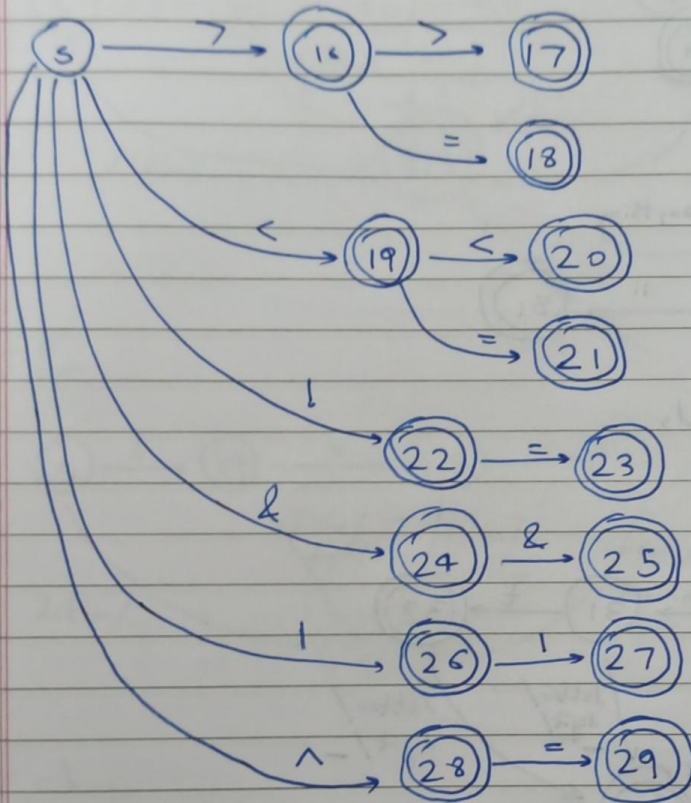 S > 16 > 17
= 18
< 19 < 20
= 21
! 22 = 23
& 24 & 25
| 26 | 27
^ 28 = 29